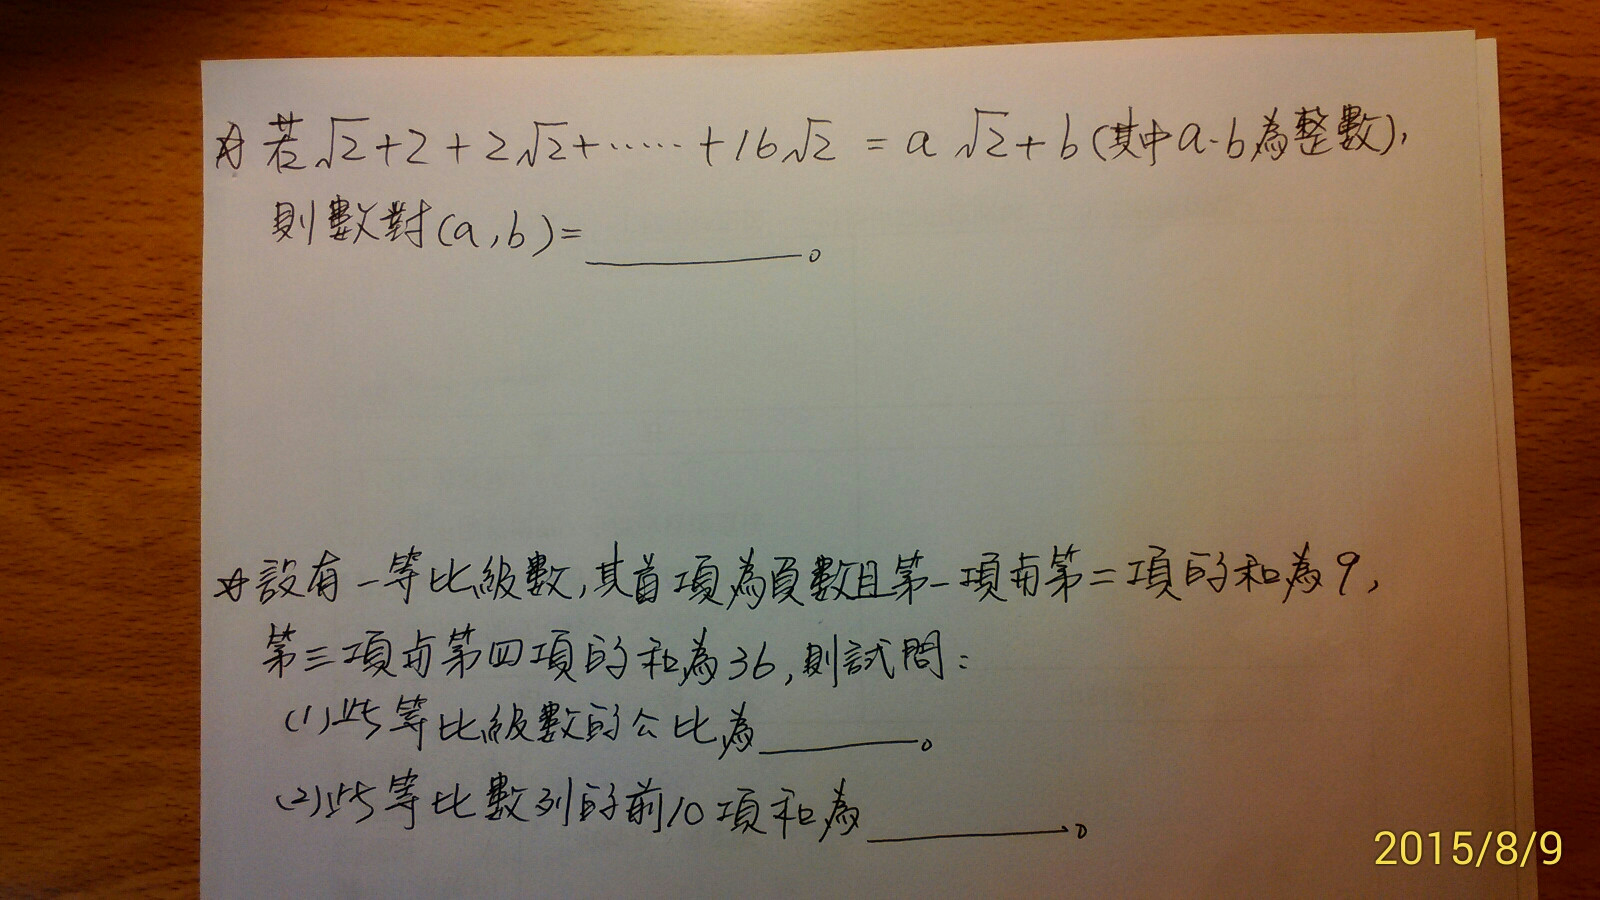 ☆若√2+2+2√2+……+16√2=a√2+b(其中a、b為整數),
則數對(a,b)=________。
☆設有一等比級數,其首項為負數且第一項與第二項的和為9,
第三項與第四項的和為36,則試問:
(1)此等比級數的公比為________。
(2)此等比數列的前10項和為________。
2015/8/9